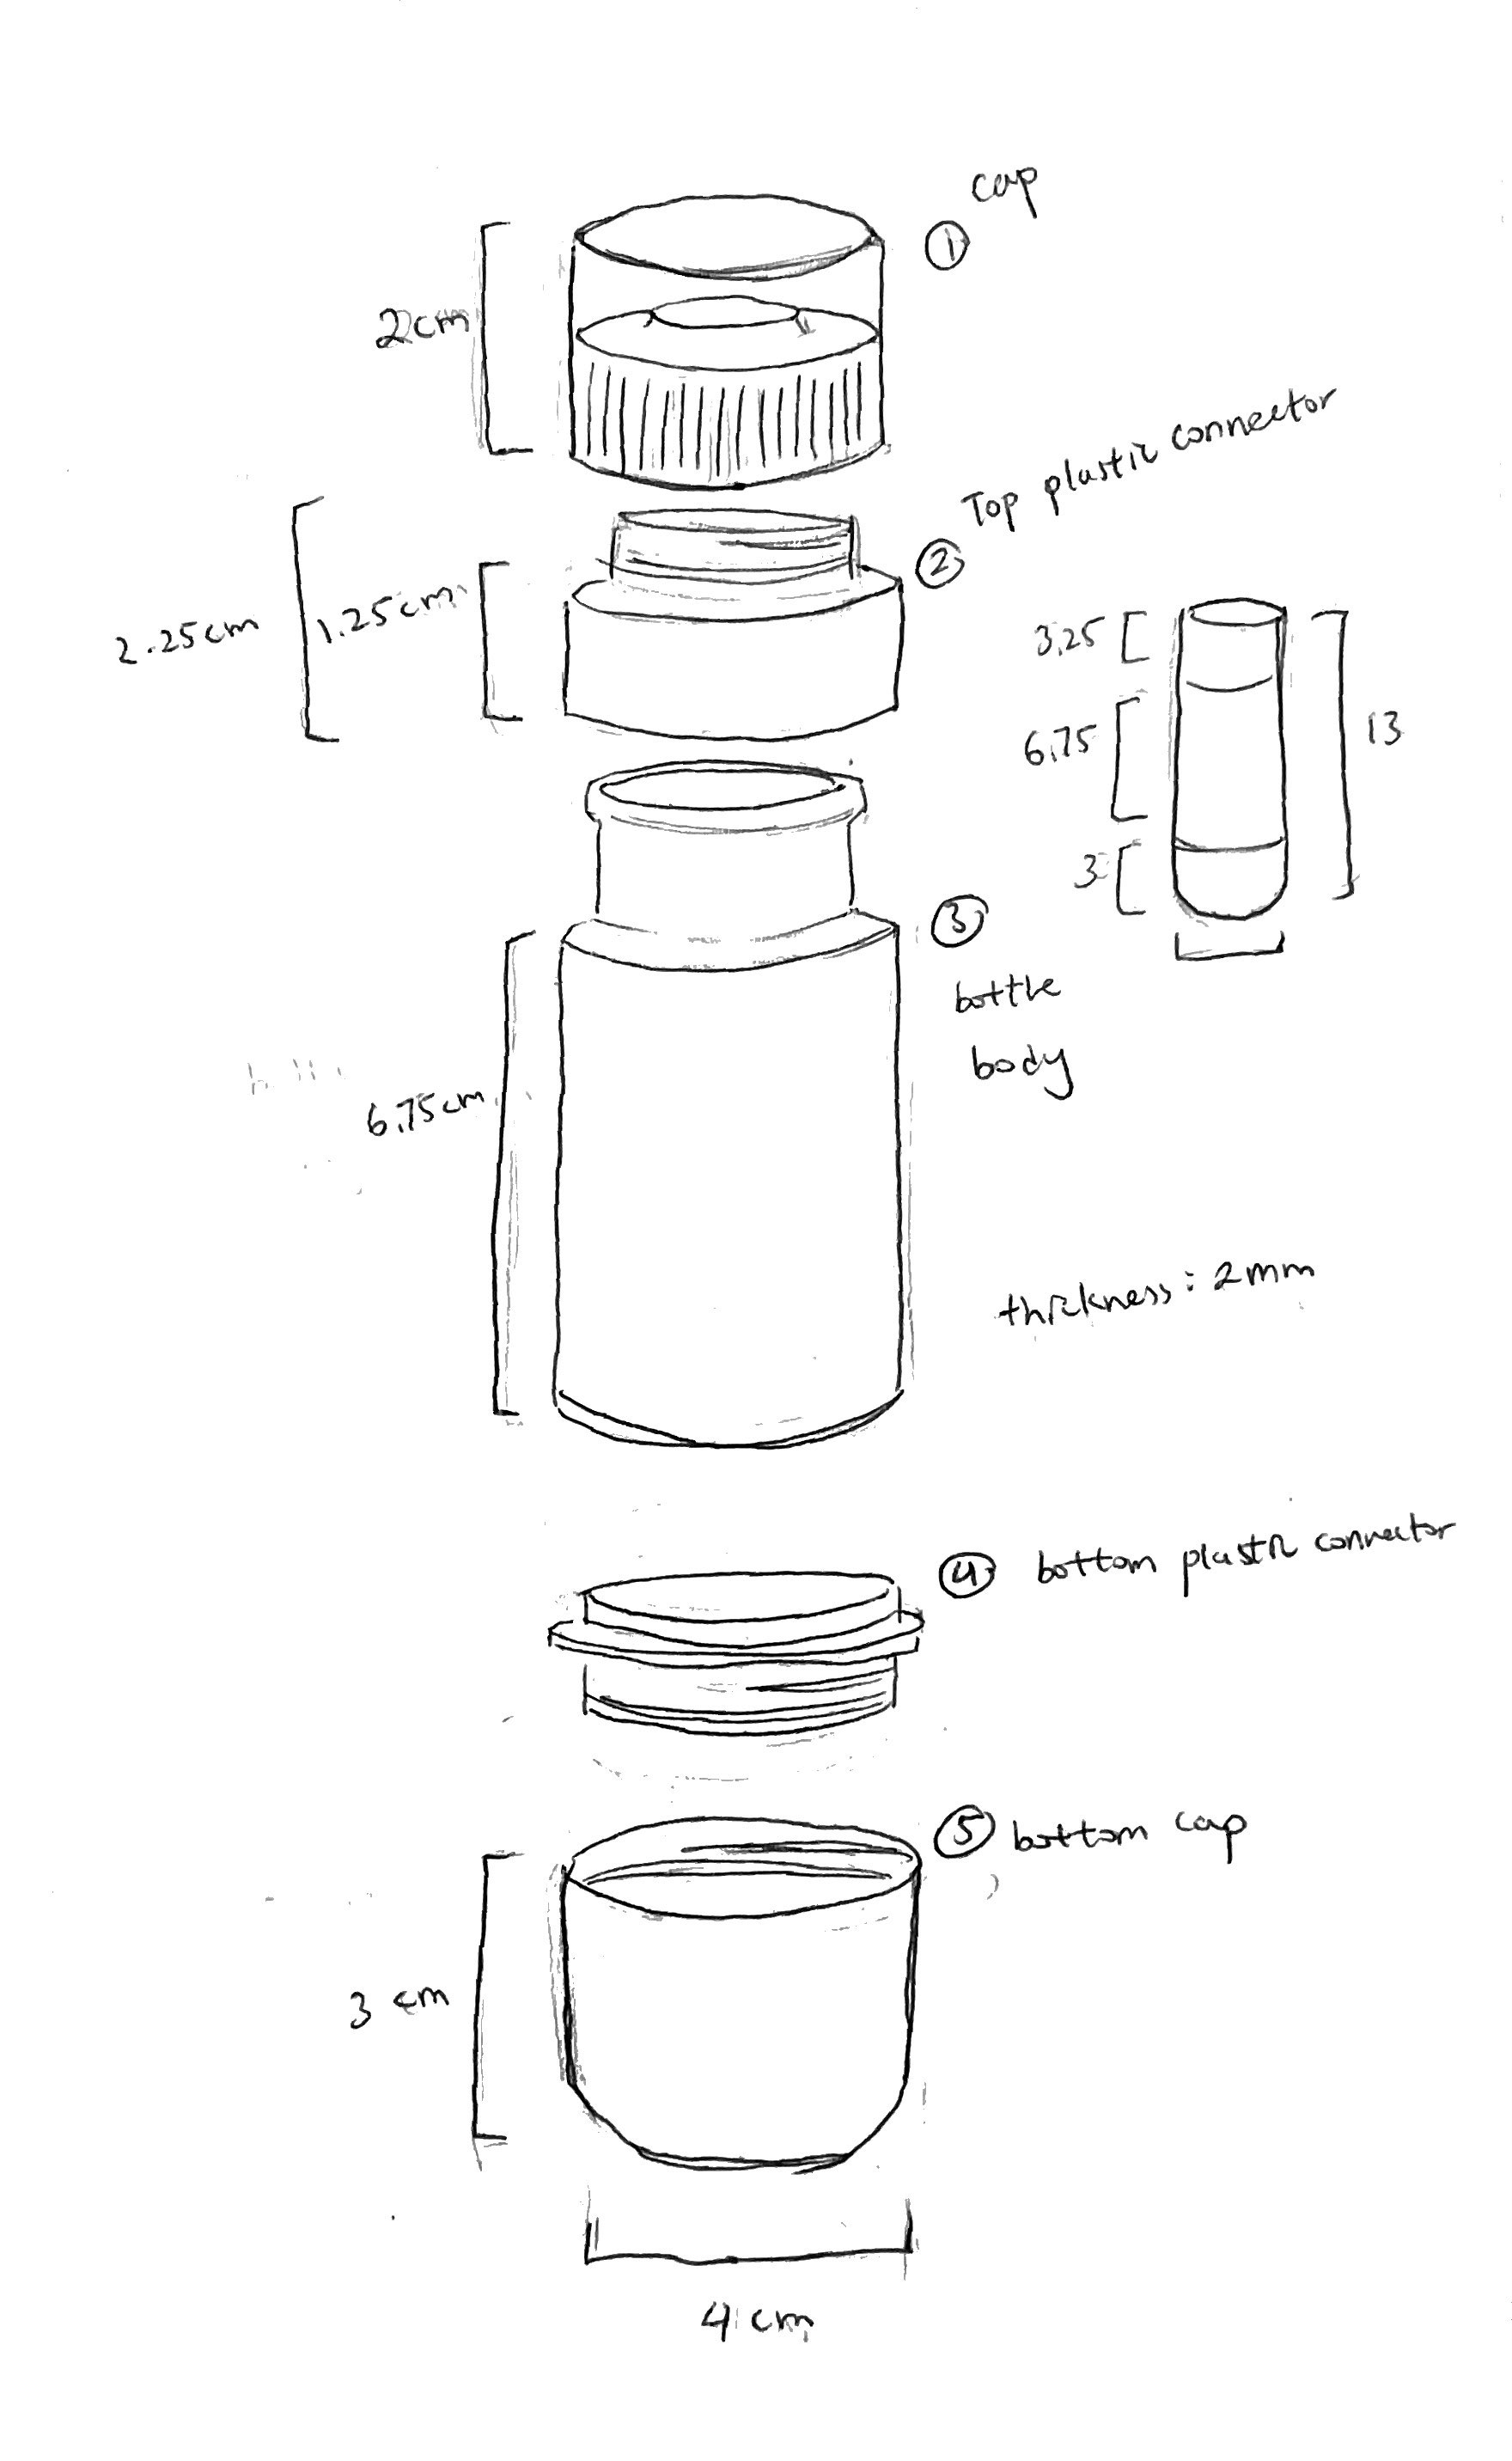 cap
①
2cm
Top plastic connector
②
2.25cm
1.25cm
3.25
6.75
13
3
③
bottle
body
6.75cm
thickness: 2mm
④ bottom plastic connector
⑤ bottom cap
3 cm
4 cm